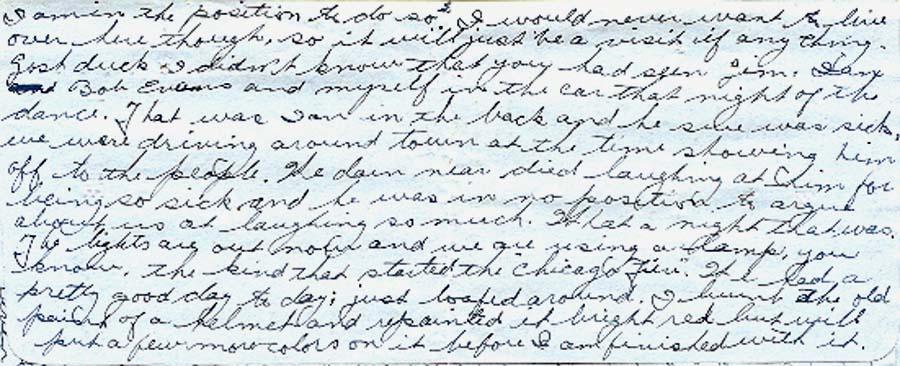 I am in the position to do so. I would never want to live
over here though, so it will just be a visit if any thing.
Gosh duck I didn't know that you had seen Jim. Ian
Bob Evans and myself in the car that night of the
dance. That was Ian in the back and he sure was sick,
we were driving around town at the time showing him
off to the people. We darn near died laughing at him for
being so sick and he was in no position to argue
about us at laughing so much. What a night that was.
The lights are out now and we are using a lamp, you
know, the kind that started the "Chicago Fire". We had a
pretty good day to day; just loafed around. I burnt the old
paint of a helmet and repainted it bright red but will
put a few more colors on it before I am finished with it.